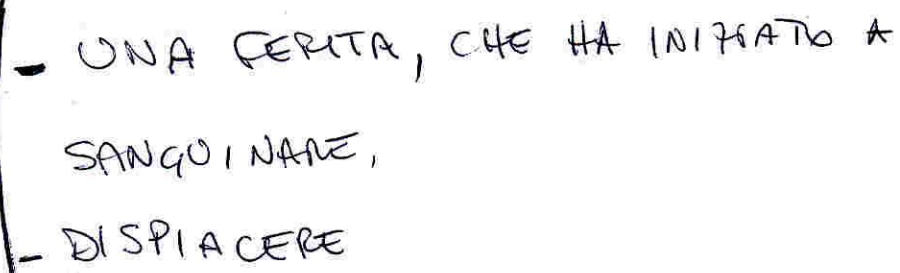 - UNA FERITA, CHE HA INIZIATO A
SANGUINARE,
- DISPIACERE